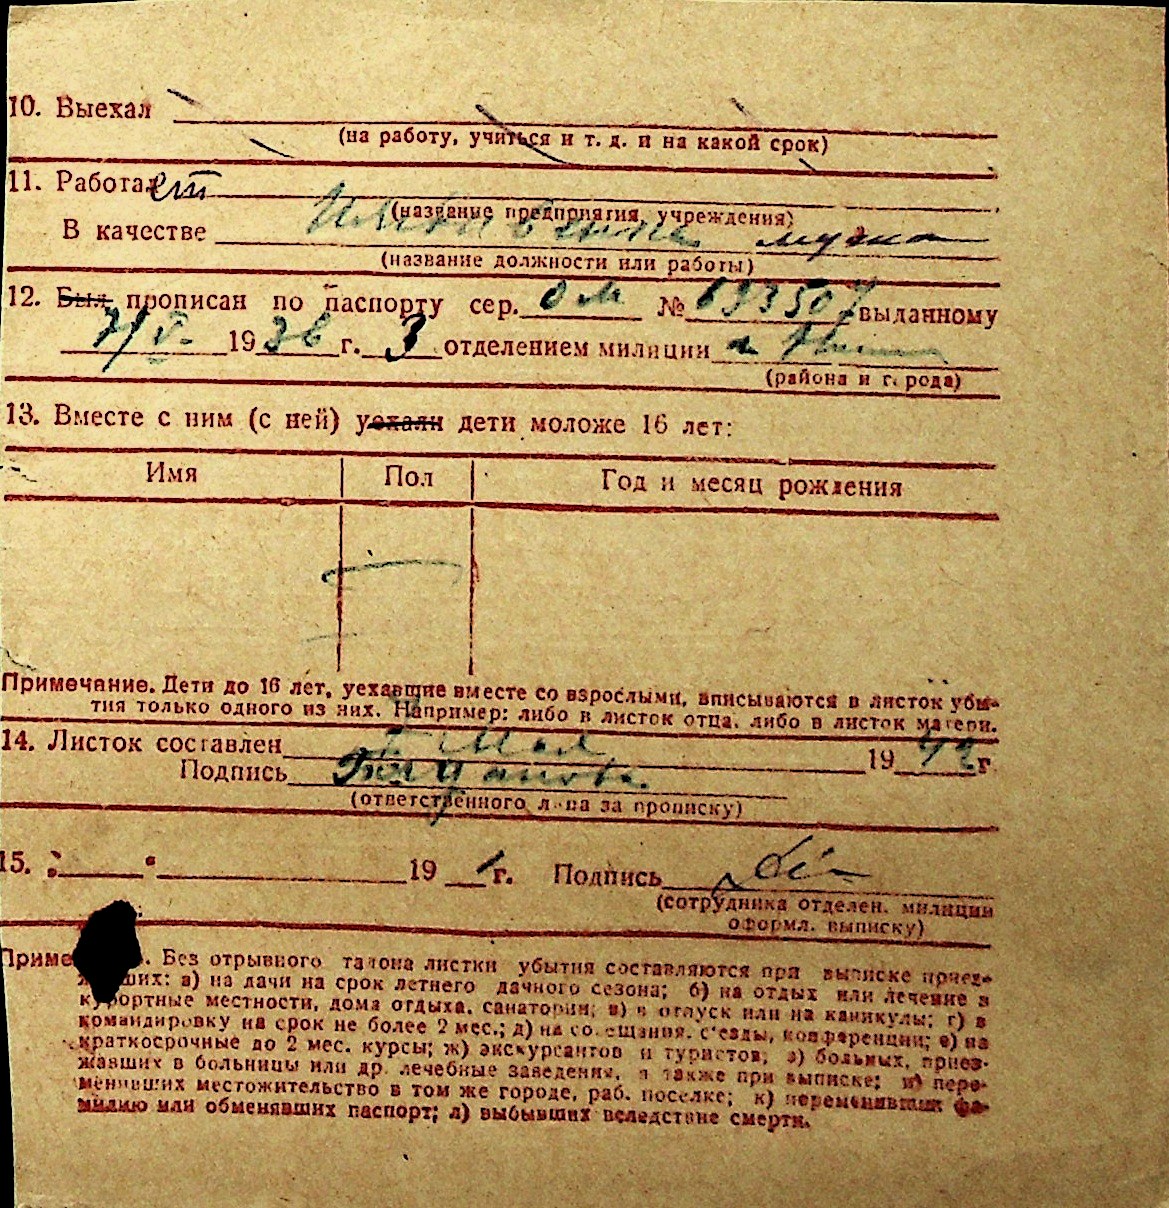 10. Выехал
(на работу, учиться и т. д. и на какой срок)
11. Работает
(название предприятия, учреждения)
В качестве иждивенка мужа
(название должности или работы)
12. Был прописан по паспорту сер. ОМ № 693507 выданному
7/V- 1936 г. 3 отделением милиции г.
(района и города)
13. Вместе с ним (с ней) уехали дети моложе 16 лет:
Имя Пол Год и месяц рождения
Примечание. Дети до 16 лет, уехавшие вместе со взрослыми, вписываются в листок убы-
тия только одного из них. Например: либо в листок отца, либо в листок матери.
14. Листок составлен мая 1942 г
Подпись
(ответственного лица за прописку)
15. " " 19 г. Подпись
(сотрудника отделен. милиции
оформл. выписку)
Приме . Без отрывного талона листки убытия составляются при выписке приез-
жавших: а) на дачи на срок летнего дачного сезона; б) на отдых или лечение в
курортные местности, дома отдыха, санатории; в) в отпуск или на каникулы; г) в
командировку на срок не более 2 мес.; д) на совещания, съезды, конференции; е) на
краткосрочные до 2 мес. курсы; ж) экскурсантов и туристов; з) больных, приез-
жавших в больницы или др. лечебные заведения, а также при выписке; и) пере-
менивших местожительство в том же городе, раб. поселке; к) переменивших фа-
милию или обменявших паспорт; л) выбывших вследствие смерти.